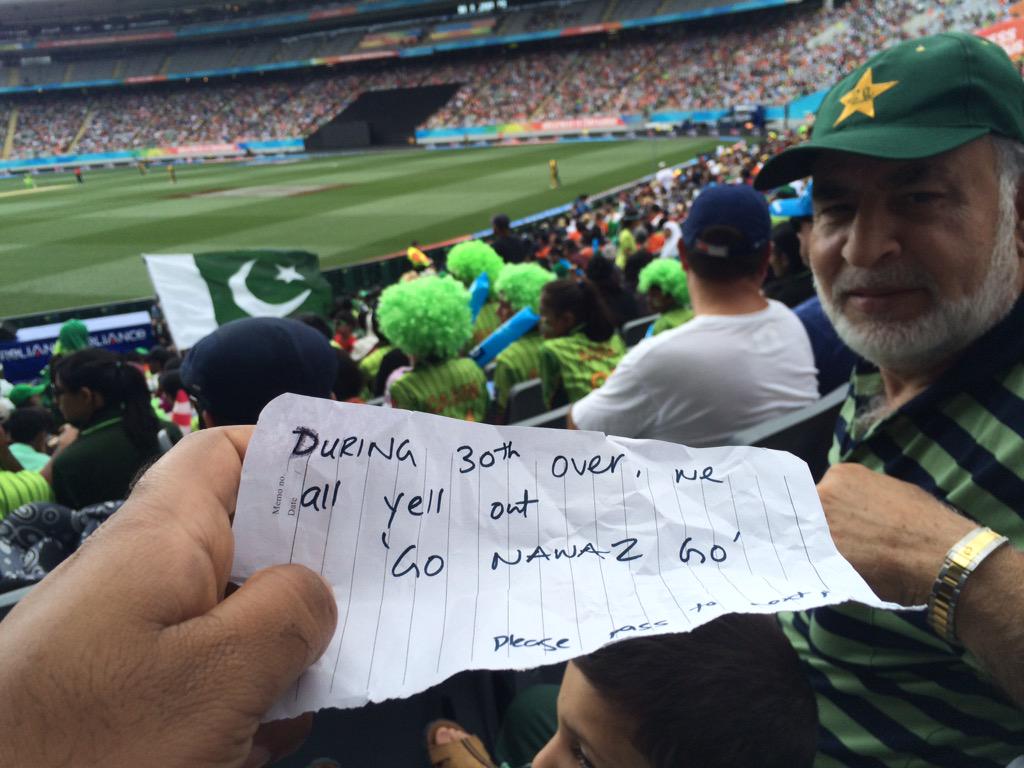 DURING 30th over, we
all yell out
'GO NAWAZ GO'
please pass to next
Memo no
Date
RELIANCE